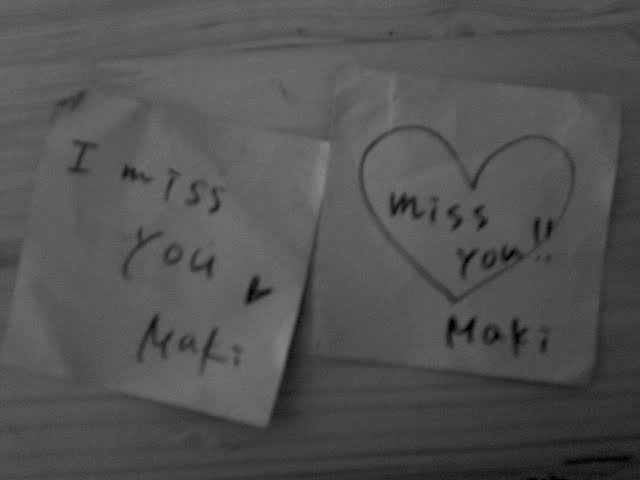 I miss
you
Maki
miss
you!!
Maki